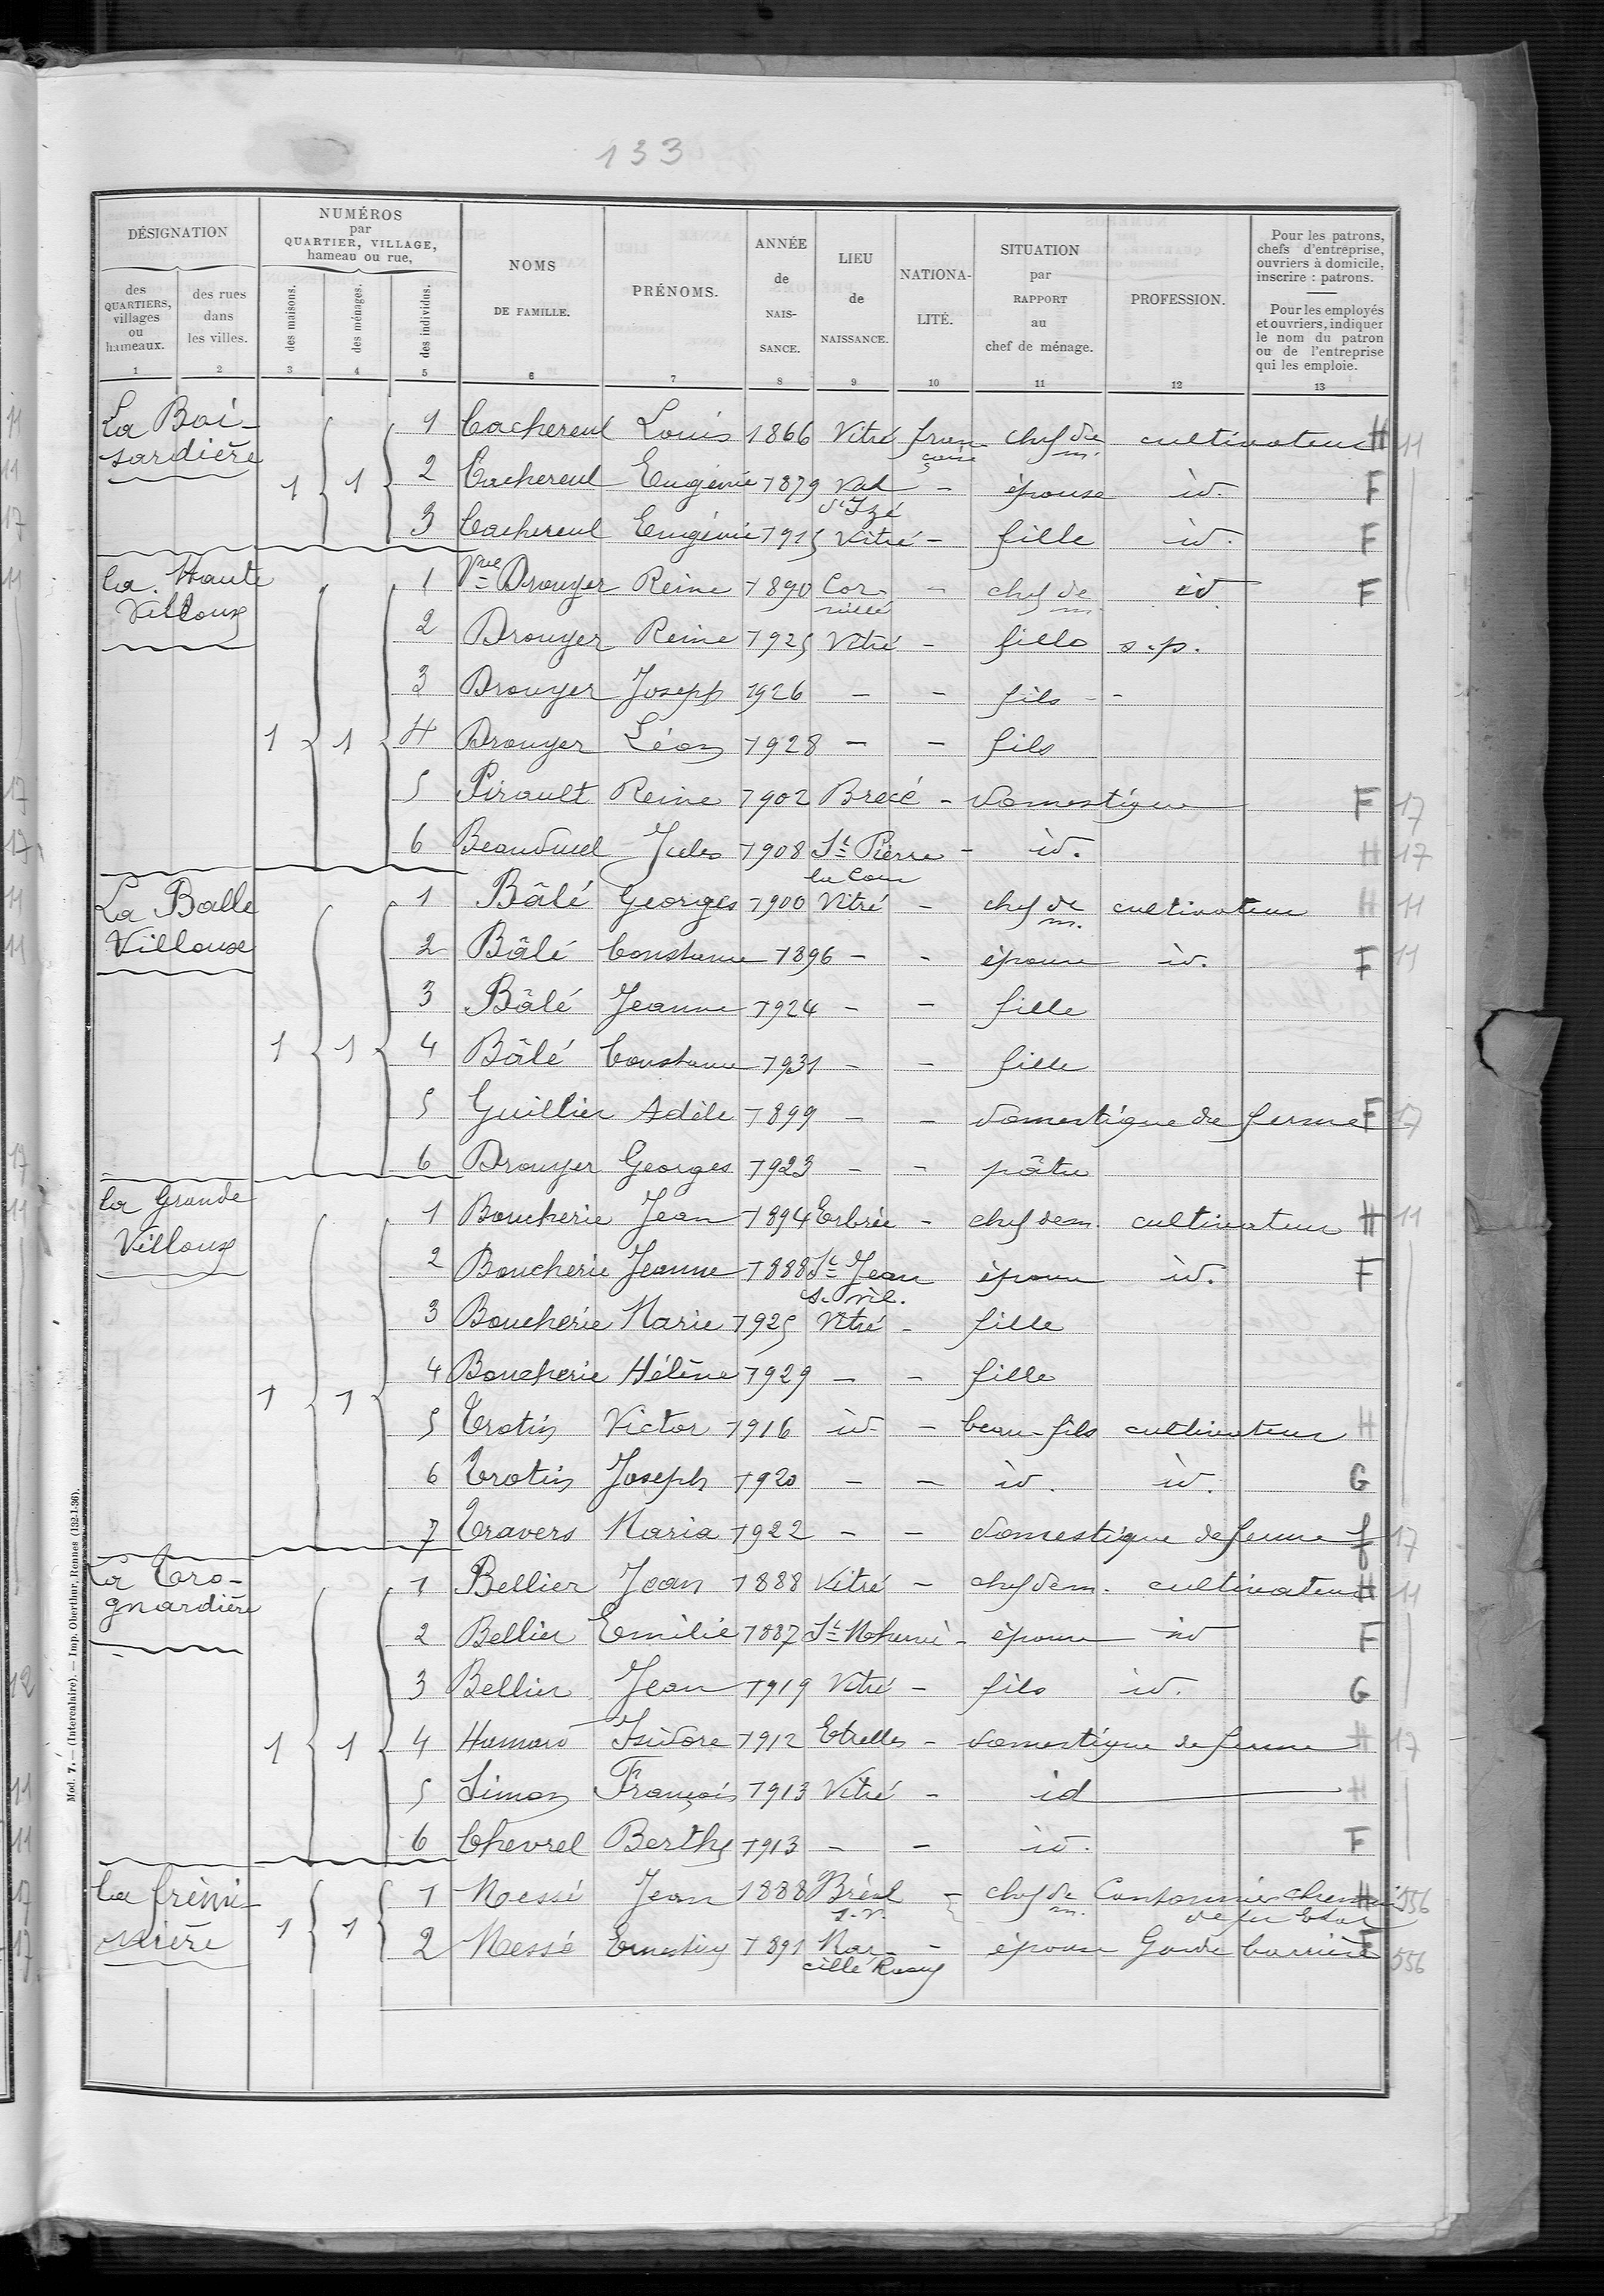 133
DÉSIGNATION
des QUARTIERS, villages ou hameaux.
des rues dans les villes.
NUMÉROS par QUARTIER, VILLAGE, hameau ou rue,
des maisons.
des ménages.
des individus.
NOMS DE FAMILLE.
PRÉNOMS.
ANNÉE de NAIS-SANCE.
LIEU de NAISSANCE.
NATIONA-LITÉ.
SITUATION par RAPPORT au chef de ménage.
PROFESSION.
Pour les patrons, chefs d'entreprise, ouvriers à domicile, inscrire : patrons.
Pour les employés et ouvriers, indiquer le nom du patron ou de l'entreprise qui les emploie.
1 2 3 4 5 6 7 8 9 10 11 12 13
La Boi-sardière 1 1 1 Cachereul Louis 1866 Vitré française chef de m. cultivateur H 11
2 Cachereul Eugénie 1879 Val d'Izé - épouse id. F
3 Cachereul Eugénie 1915 Vitré - fille id. F
la Haute Villoux 1 1 1 Vve Drouyer Reine 1890 Cornillé - chef de m. id F
2 Drouyer Reine 1925 Vitré - fille s.p.
3 Drouyer Joseph 1926 - - fils -
4 Drouyer Léon 1928 - - fils
5 Pirault Reine 1902 Brecé - domestique F 17
6 Jules 1908 St Pierre la Cour - id. H 17
La Balle Villoux 1 1 1 Bâlé Georges 1900 Vitré - chef de m. cultivateur H 11
2 Bâlé Constance 1896 - - épouse id. F 11
3 Bâlé Jeanne 1924 - - fille
4 Bâlé Constance 1931 - - fille
5 Guillier Adèle 1899 - - domestique de ferme F 17
6 Drouyer Georges 1923 - - pâtre
la Grande Villoux 1 1 1 Boucherie Jean 1894 Erbrée - chef de m. cultivateur H 11
2 Boucherie Jeanne 1888 St Jean s. Vil. épouse id. F
3 Boucherie Marie 1925 Vitré - fille
4 Boucherie Hélène 1929 - - fille
5 Trotin Victor 1916 id - beau-fils cultivateur H
6 Trotin Joseph 1920 - - id. id. G
7 Travers Maria 1922 - - domestique de ferme f 17
La Tro-gnardière 1 1 1 Bellier Jean 1888 Vitré - chef de m. cultivateur H 11
2 Bellier Emilie 1887 St M'hervé - épouse id F
3 Bellier Jean 1919 Vitré - fils id. G
4 Hamard Isidore 1912 Etrelles - domestique de ferme H 17
5 Simon François 1913 Vitré - id H
6 Chevrel Berthe 1913 - - id. F
la frémi-nière 1 1 1 Messé Jean 1888 Bréal s. v. - chef de m. Cantonnier chemin de fer Etat H 556
2 Messé Ernestine 1891 Marcillé Raoul - épouse Garde barrière F 556
Mod. 7. — (Intercalaire). — Imp. Oberthur, Rennes (132-1-36).